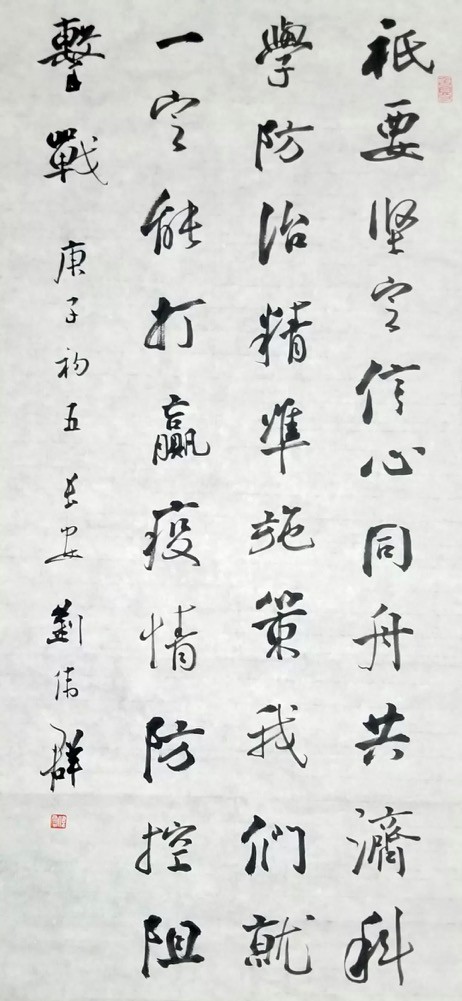 祇要坚定信心同舟共濟科
學防治精準施策我們就
一定能打贏疫情防控阻
擊戰 庚子初五 長安 劉偉群